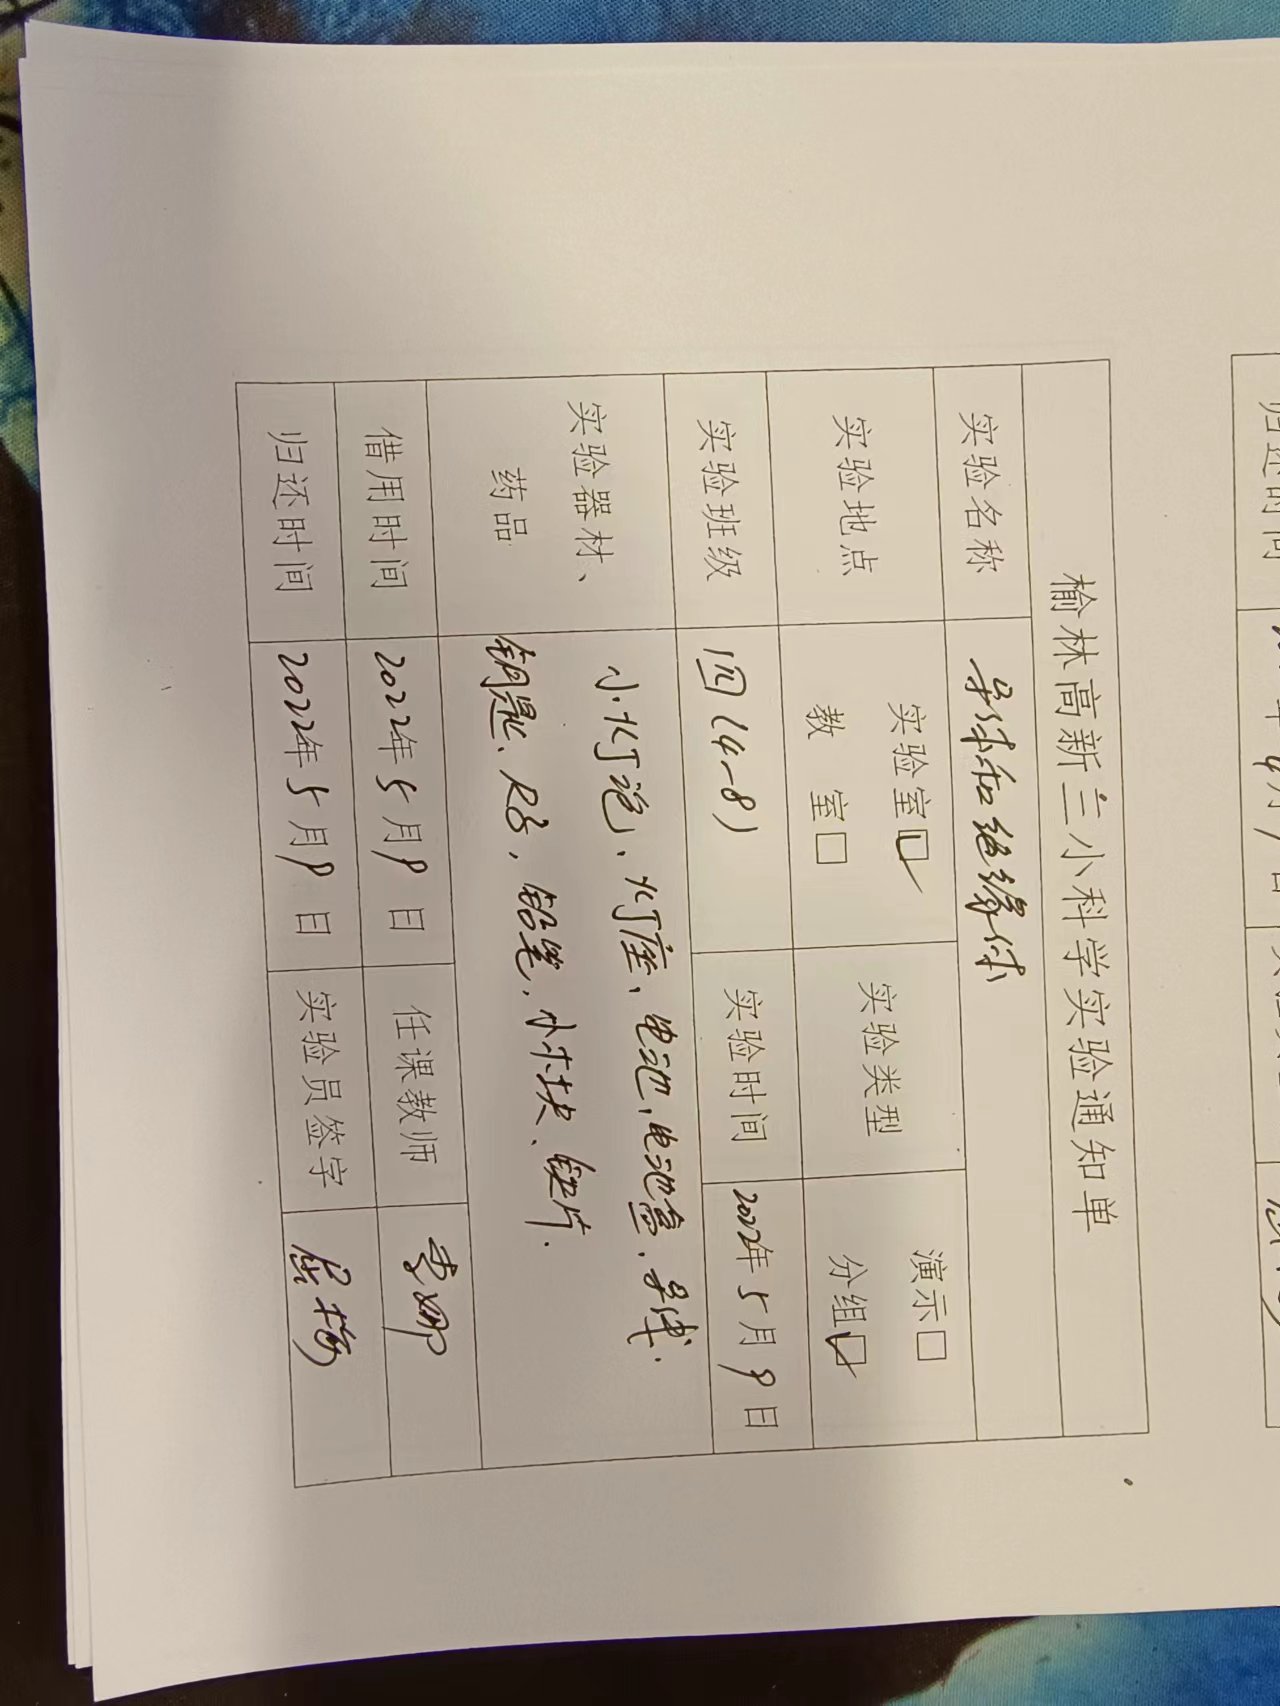 榆林高新三小科学实验通知单
实验名称 导体和绝缘体
实验地点 实验室☑ 教 室□ 实验类型 演示□ 分组☑
实验班级 四(4-8) 实验时间 2022年5月9日
实验器材、药品 小灯泡、灯座、电池、电池盒、导线.
钥匙、尺子,铅笔,小木块、铁片.
借用时间 2022年5月9日 任课教师 李娜
归还时间 2022年5月9日 实验员签字
归还时间